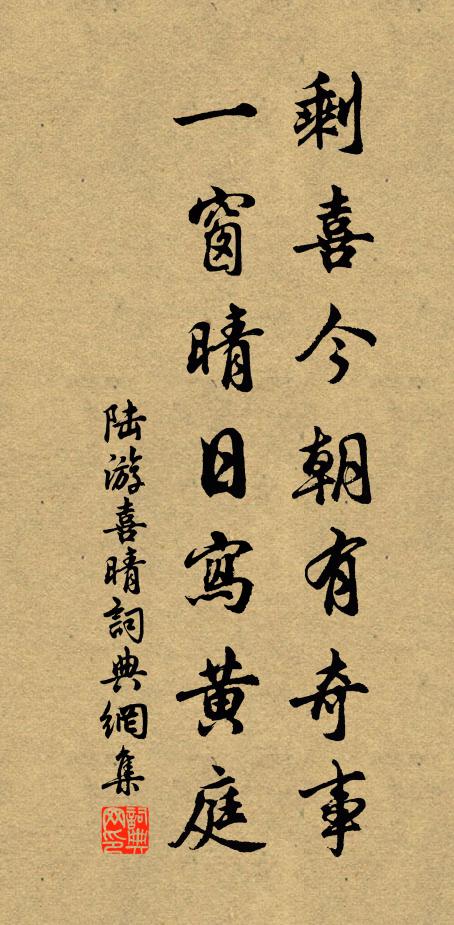 剩喜今朝有奇事
一窗晴日寫黃庭
陆游喜晴詞典網集
詞典
网印